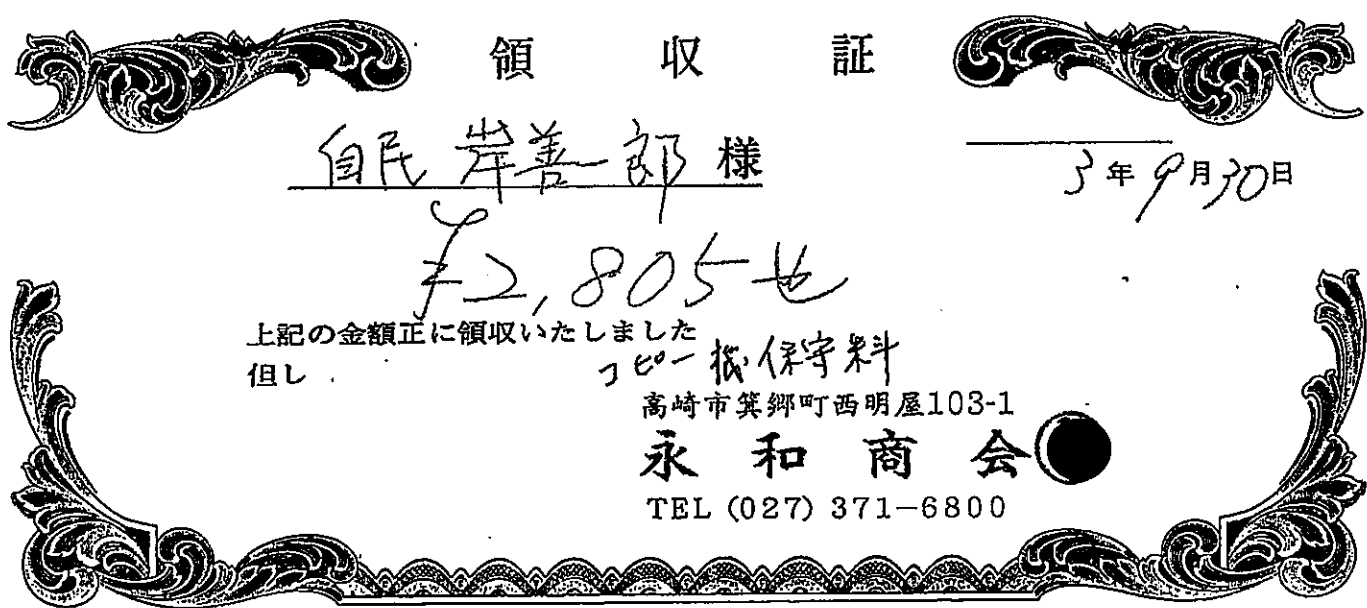 領収証
自民 岸善一郎 様
3年9月30日
¥2,805也
上記の金額正に領収いたしました
但し コピー機保守料
高崎市箕郷町西明屋103-1
永和商会
TEL (027) 371-6800